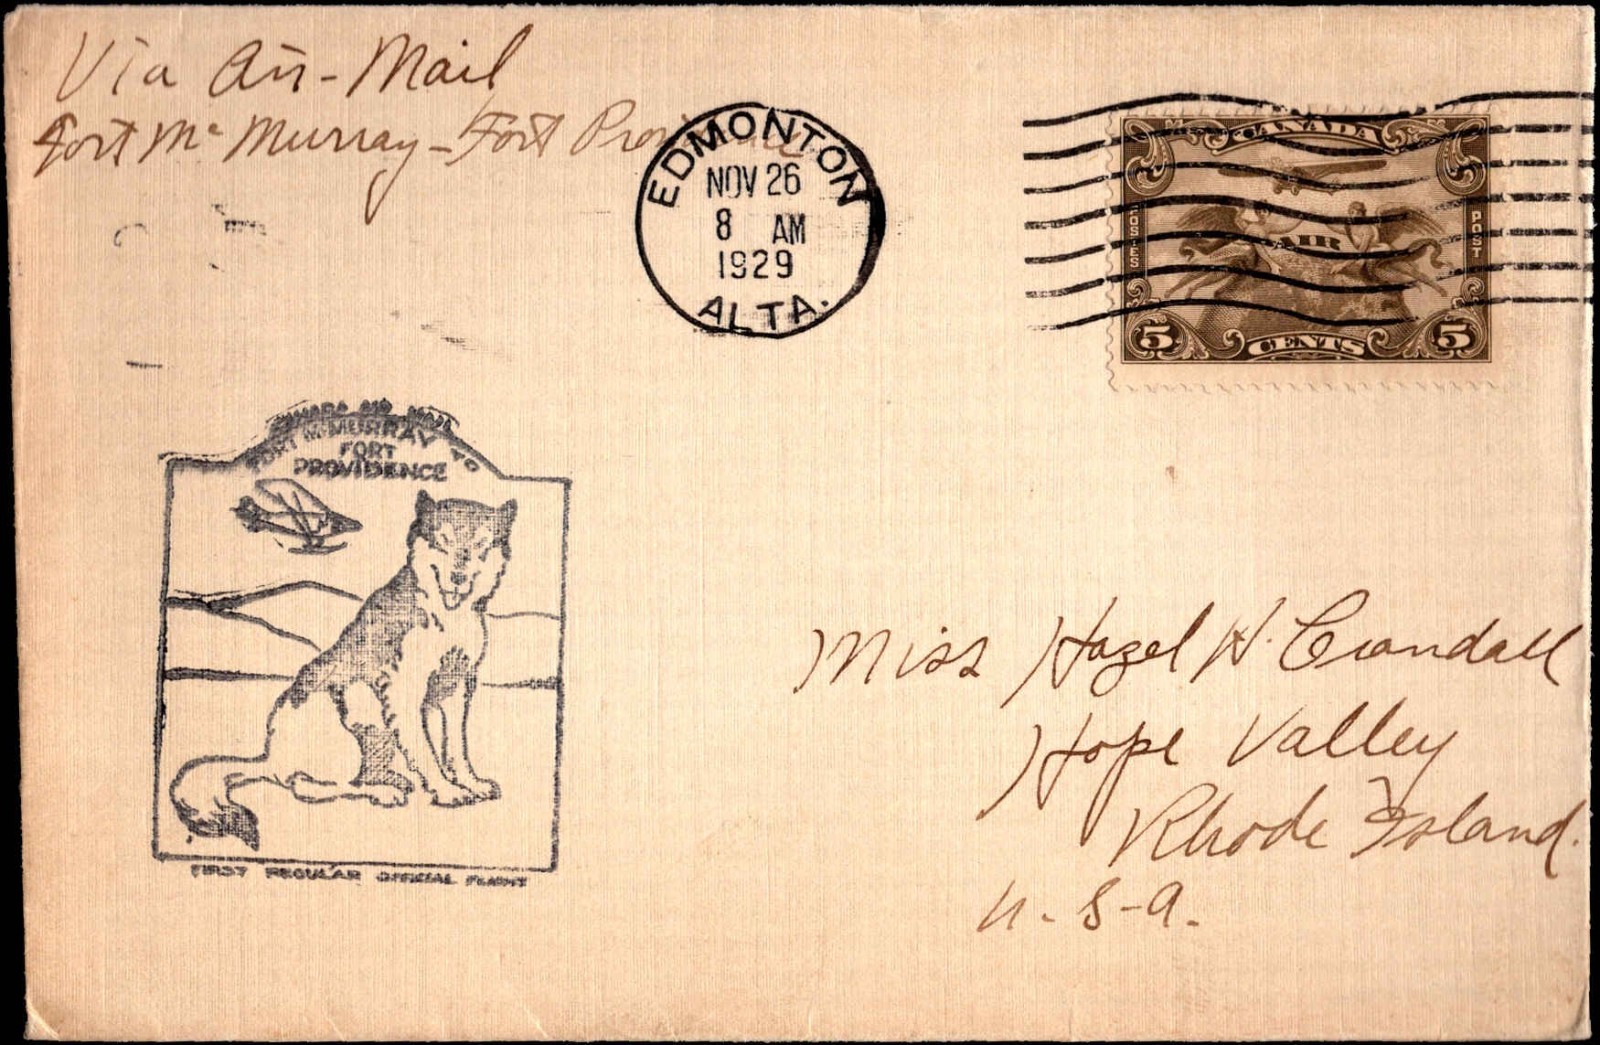 Via Air-Mail
Fort Mc Murray - Fort Providence
EDMONTON
NOV 26
8 AM
1929
ALTA.
CANADA
POSTES
AIR
POST
5 CENTS 5
CANADA AIR MAIL
FORT McMURRAY TO
FORT
PROVIDENCE
FIRST REGULAR OFFICIAL FLIGHT
Miss Hazel W. Crandall
Hope Valley
Rhode Island.
U. S. A.